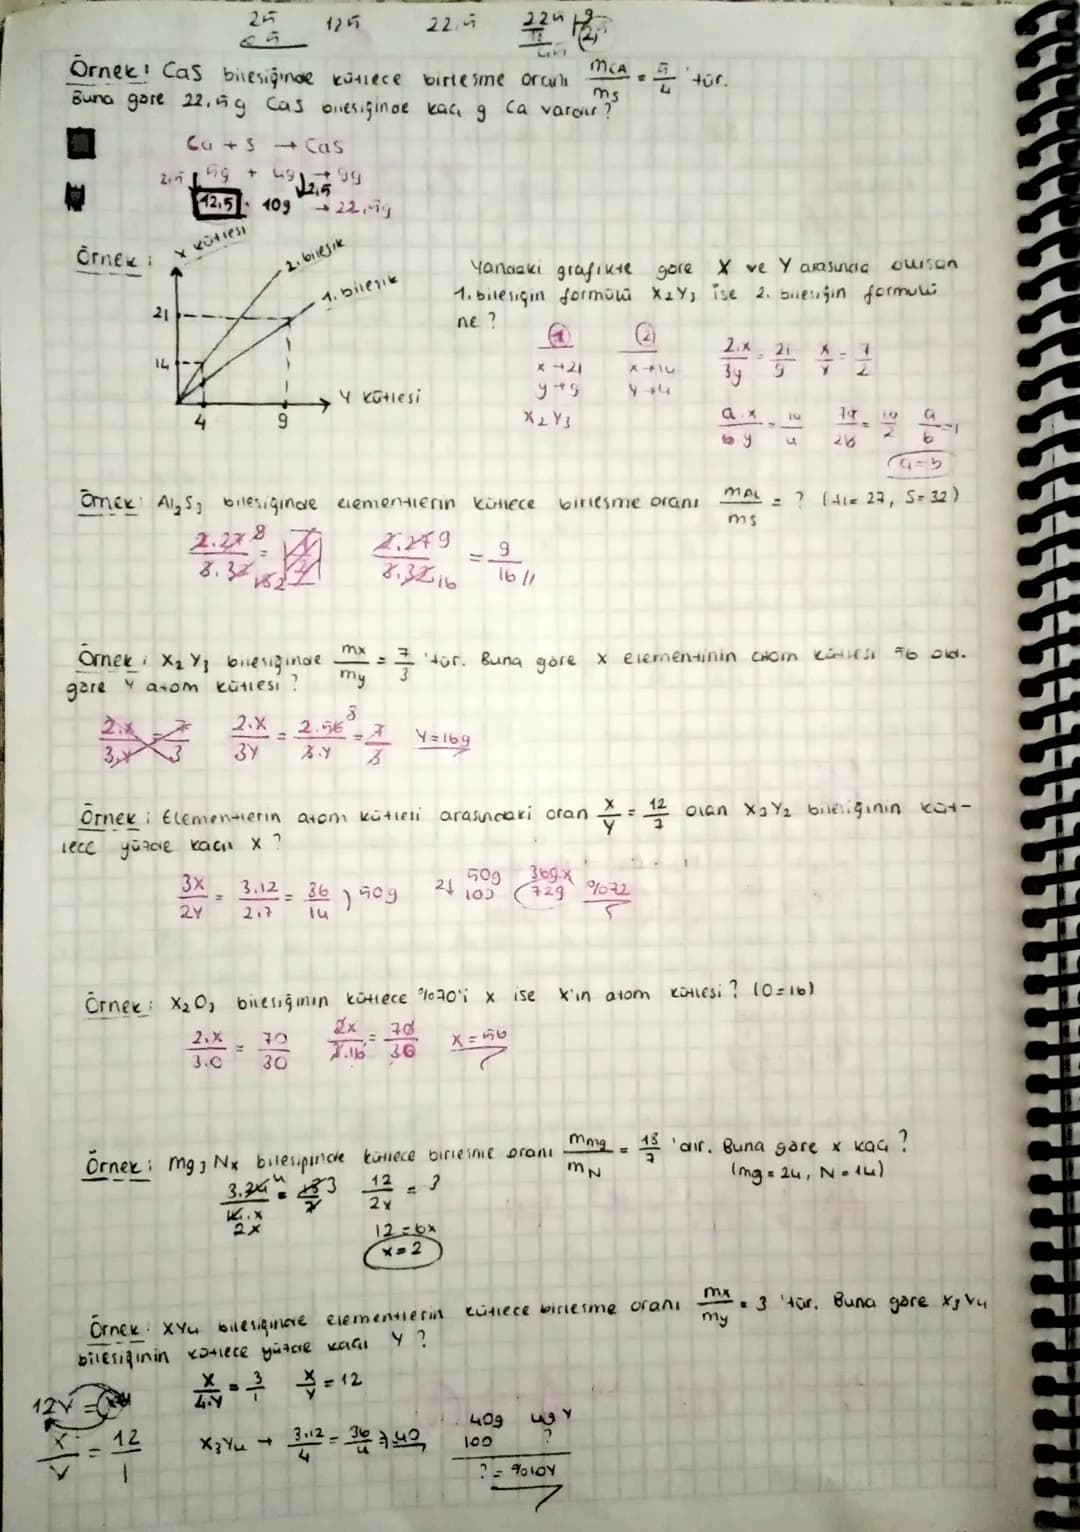 25 125 22,5 225 | 9
18 2,5
45
Örnek: CaS bileşiğinde kütlece birleşme oranı mCa/mS = 5/4 'tür.
Buna göre 22,5 g CaS bileşiğinde kaç g Ca vardır?
Ca + S → CaS
2,5 ↓ 5g + 4g ↓ 2,5 → 9g
12,5 10g → 22,5g
Örnek:
X kütlesi
2. bileşik
1. bileşik
21
14
4 9
Y kütlesi
Yandaki grafikte göre X ve Y arasında oluşan
1. bileşiğin formülü X2Y3 ise 2. bileşiğin formülü
ne?
1 2
x→21 x→14
y→9 y→4
X2Y3
2.x/3y = 21/9 x/y = 7/2
a.x/b.y = 14/4 7a/2b = 14/2 a/b = 1
a=b
Örnek: Al2S3 bileşiğinde elementlerin kütlece birleşme oranı mAl/mS = ? (Al= 27, S= 32)
2.27 9/3.32 16 = 9/16 //
Örnek: X2Y3 bileşiğinde mx/my = 7/3 'tür. Buna göre X elementinin atom kütlesi 56 old.
göre Y atom kütlesi?
2.x/3.y = 7/3 2.X/3Y = 2.56 8/3.Y = 7/3 Y=16g
Örnek: Elementlerin atom kütleli arasındaki oran X/Y = 12/7 olan X3Y2 bileşiğinin küt-
lece yüzde kaçı X?
3X/2Y = 3.12/2.7 = 36/14 ) 50g 2↓ 50g 36g x
100 72g %72
Örnek: X2O3 bileşiğinin kütlece %70'i x ise X'in atom kütlesi? (O=16)
2.x/3.O = 70/30 2x/3.16 = 70/30 x=56
Örnek: Mg3Nx bileşiğinde kütlece birleşme oranı mMg/mN = 18/7 'dir. Buna göre x kaç?
(mg=24, N=14)
3.24/14.x = 18/7 12/2x = 3
2x 12=6x
x=2
Örnek: XY4 bileşiğinde elementlerin kütlece birleşme oranı mx/my = 3 'tür. Buna göre X3Y4
bileşiğinin kütlece yüzde kaçı Y?
x/4.y = 3/1 x/y = 12
12Y =
X/Y = 12/1
X3Y4 → 3.12/4 = 36/4 40
40g 4g Y
100 ?
? = %10Y